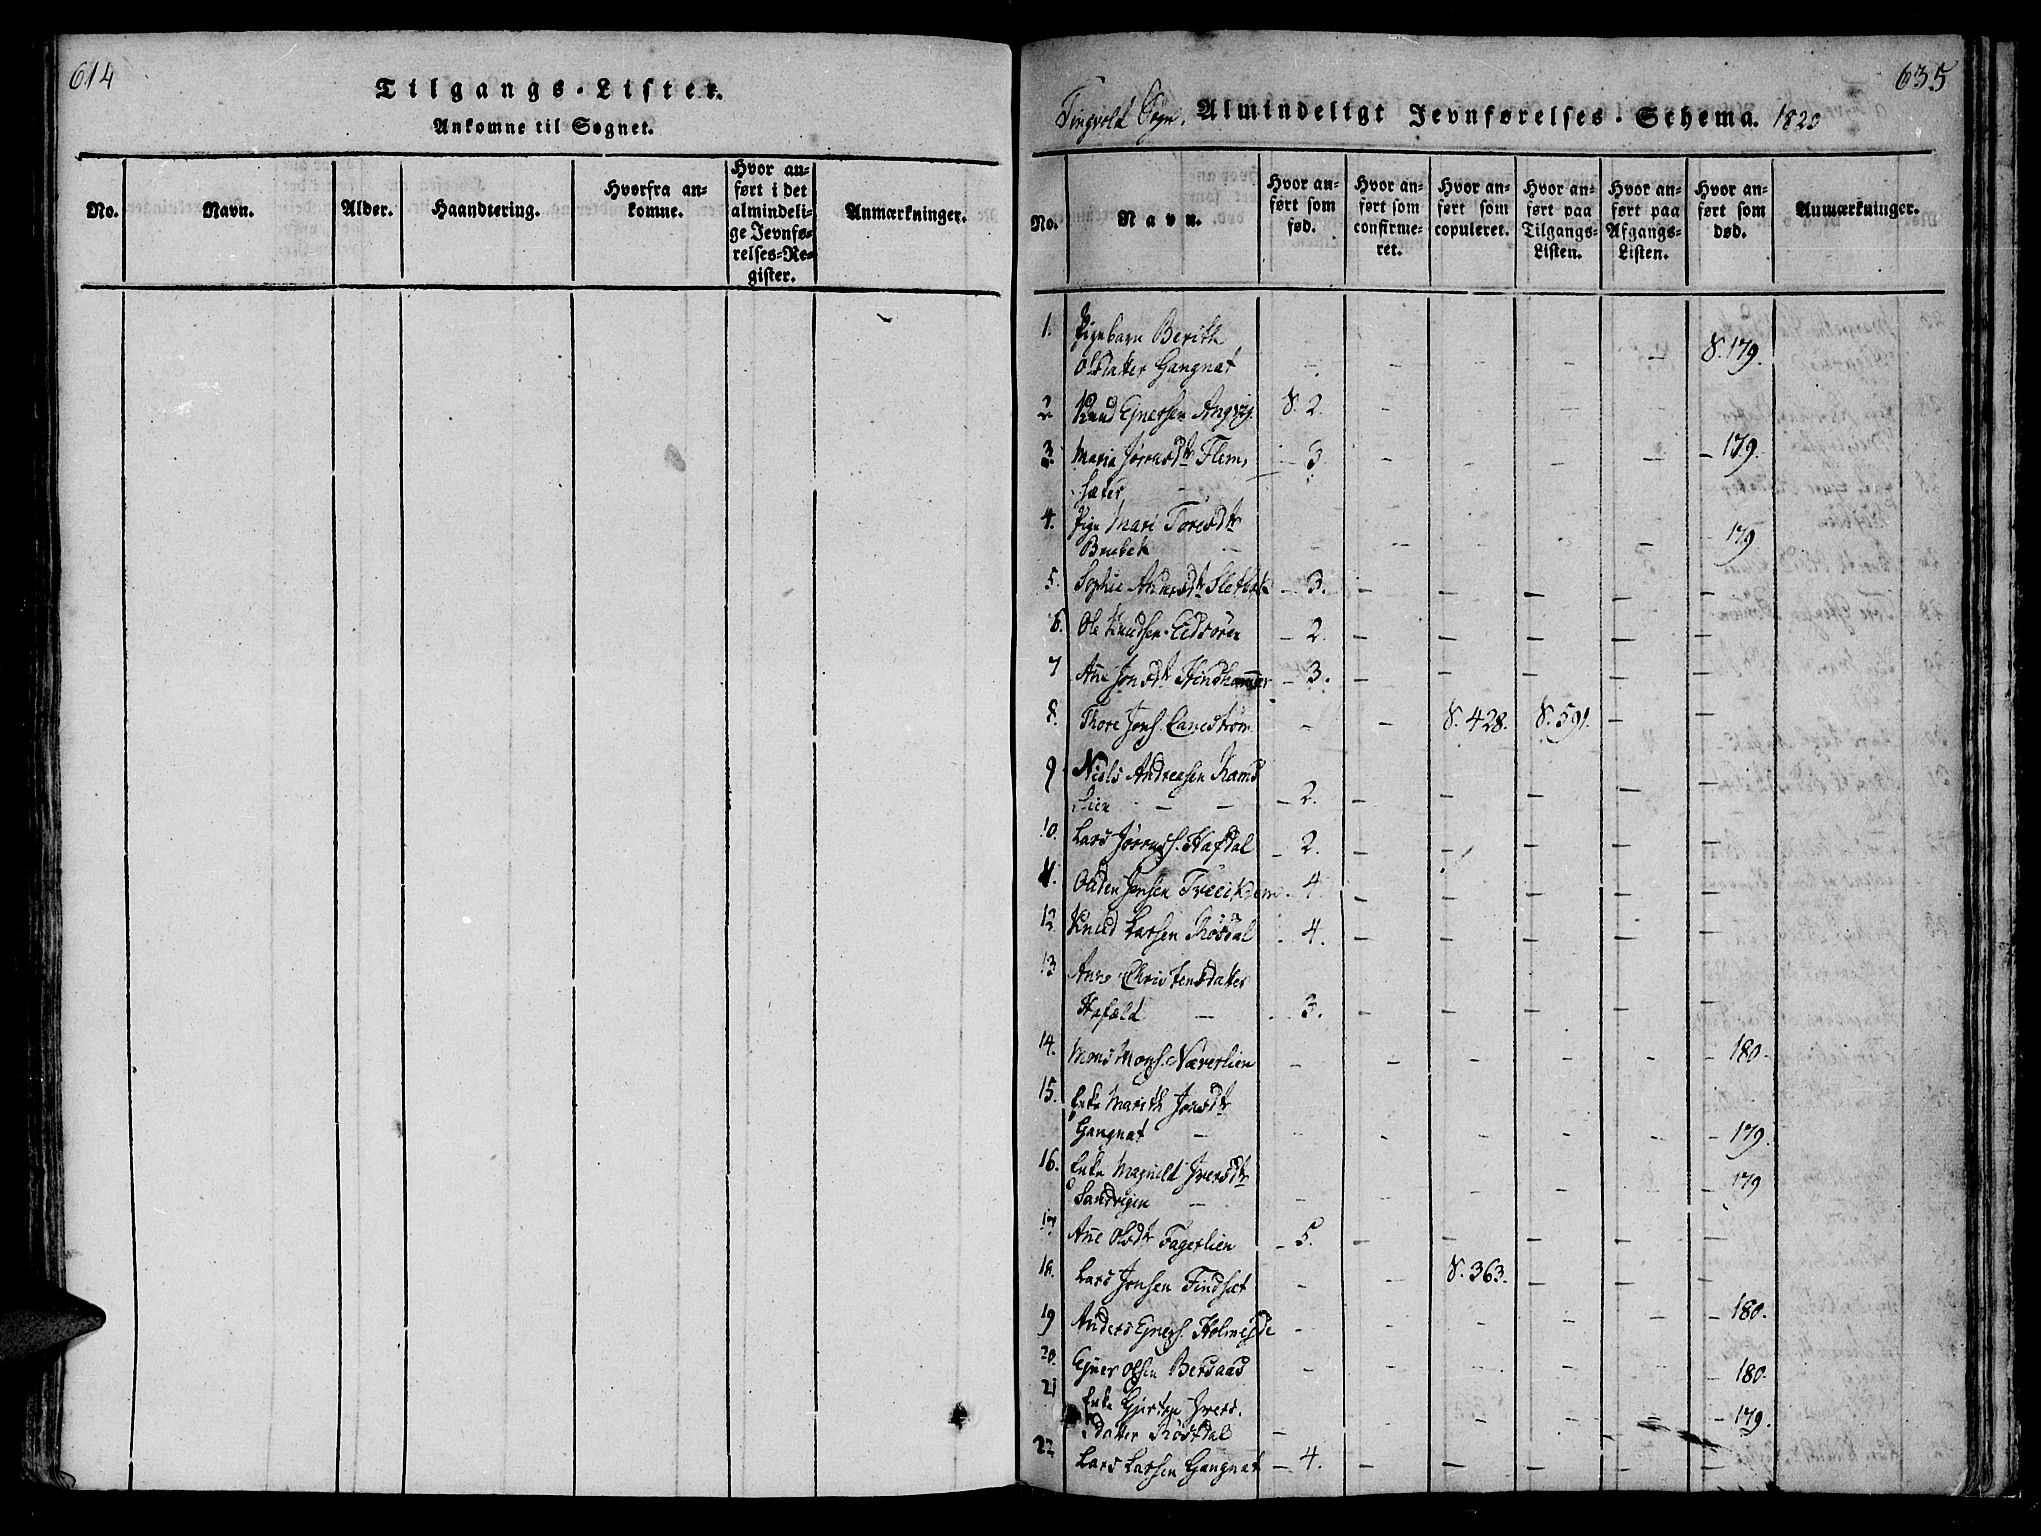 614
Tilgangs-Lister.
Ankomne til Sognet.
No.
Navn.
Alder.
Haandtering.
Hvorfra an-
komne.
Hvor an-
ført i det
almindeli-
ge Jevnfø-
relses-Re-
gister.
Anmærkninger.
635
Tingvold Sogn. Almindeligt Jevnførelses-Schema. 1820
No.
Navn.
Hvor an-
ført som
fød.
Hvor an-
ført som
confirme-
ret.
Hvor an-
ført som
copuleret.
Hvor an-
ført paa
Tilgangs-
Listen.
Hvor an-
ført paa
Afgangs-
Listen.
Hvor an-
ført som
død.
Anmærkninger.
1. Pigebarn Berith
Olsdatter Gangnat - - - - - S. 179.
2. Knud Ejnersen Angvig S. 2. - - - - -
3. Maria Jørnsdtr Flem-
sæter - 3 - - - - - 179.
4. Pige Mari Toresdtr
Brubek - - - - - 179
5. Sophie Andersdtr Sletbak - 3. - - - - -
6. Ole Knudsen Eidsøren - 2. - - - - -
7 Ane Jonsdtr Hindhammer - 3. - - - - -
8. Thore Jons. - - S. 428. S. 591. - -
9 Niels Andreasen Rams-
lien - - - 2. - - - - -
10. Lars Jørns. Hafdal - 2. - - - - -
11. Oden Jonsen Treeikrem - 4. - - - - -
12 Knud Larsen Røsdal - 4. - - - - -
13 Anne Christensdatter
Hafæld - - 3. - - - - -
14. Mons Mons. Næverlien - - - - - - 180-
15. Enke Marith Jonsdtr
Gangnat - - - - - - - 179.
16. Enke Magnild Iversdtr
Sandvigen - - - - - - - 179
17 Ane Olsdtr Fagerlien - 5. - - - - -
18. Lars Jonsen Findsæt - - S. 363. - - -
19 Anders Ejners. Holmejde - - - - - - 180.
20. Ejner Olsen Bersaas - - - - - - 180.
21 Enke Gjertrue Ivers-
datter Røsdal - - - - - - 179.
22 Lars Larsen Gangnat - 4. - - - - -